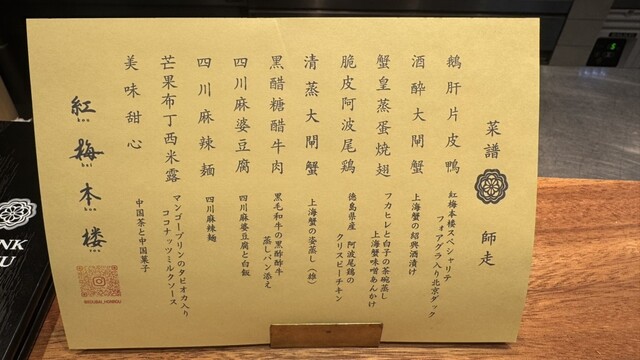 菜譜 師走
鵝肝片皮鴨
紅梅本楼スペシャリテ
フォアグラ入り北京ダック
酒醉大閘蟹
上海蟹の紹興酒漬け
蟹皇蒸蛋燒翅
フカヒレと白子の茶碗蒸し
上海蟹味噌あんかけ
脆皮阿波尾鶏
徳島県産 阿波尾鶏の
クリスピーチキン
清蒸大閘蟹
上海蟹の姿蒸し(雄)
黒醋糖醋牛肉
黒毛和牛の黒酢酢牛
蒸しパン添え
四川麻婆豆腐
四川麻婆豆腐と白飯
四川麻辣麺
四川麻辣麺
芒果布丁西米露
マンゴープリンのタピオカ入り
ココナッツミルクソース
美味甜心
中国茶と中国菓子
紅梅本楼